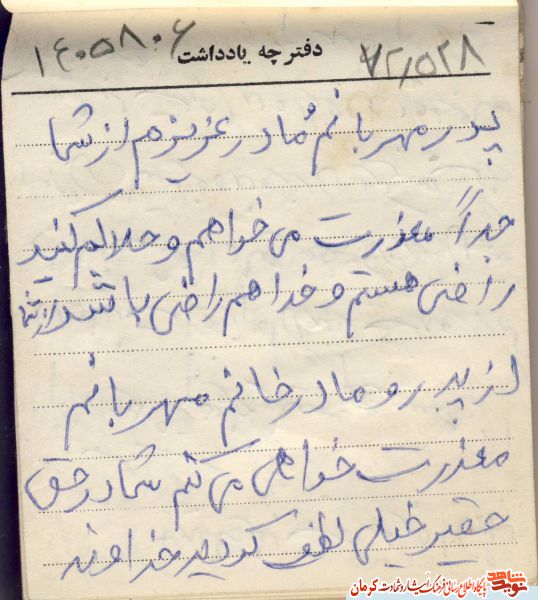 ۱۴۰۵۸۰۶ دفترچه یادداشت ۷۲٫۵۲۸
پدر مهربانم و مادر عزیزم از شما
جداً معذرت می خواهم و حلالم کنید
راضی هستم و خدا هم راضی باشد از شما
از پدر و مادر خانم مهربانم
معذرت خواهی می کنم شما در حق
حقیر خیلی لطف کردید خداوند
نوید شاهد پایگاه اطلاع رسانی فرهنگ ایثار و شهادت کرمان